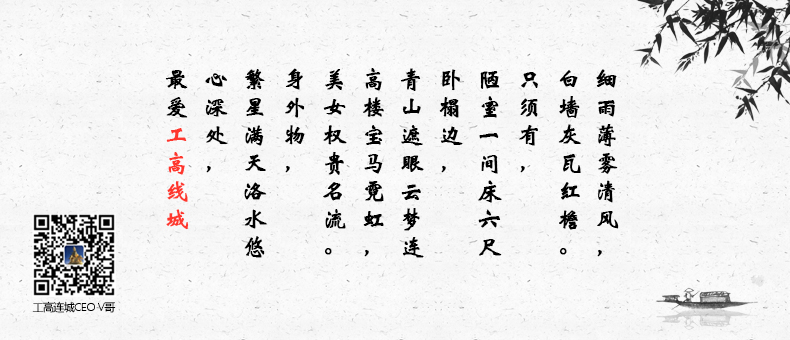 细雨薄雾清风，
白墙灰瓦红檐。
只须有，
陋室一间床六尺
卧榻边，
青山遮眼云梦连
高楼宝马霓虹，
美女权贵名流。
身外物，
繁星满天洛水悠
心深处，
最爱工高线城
工高连城CEO V哥